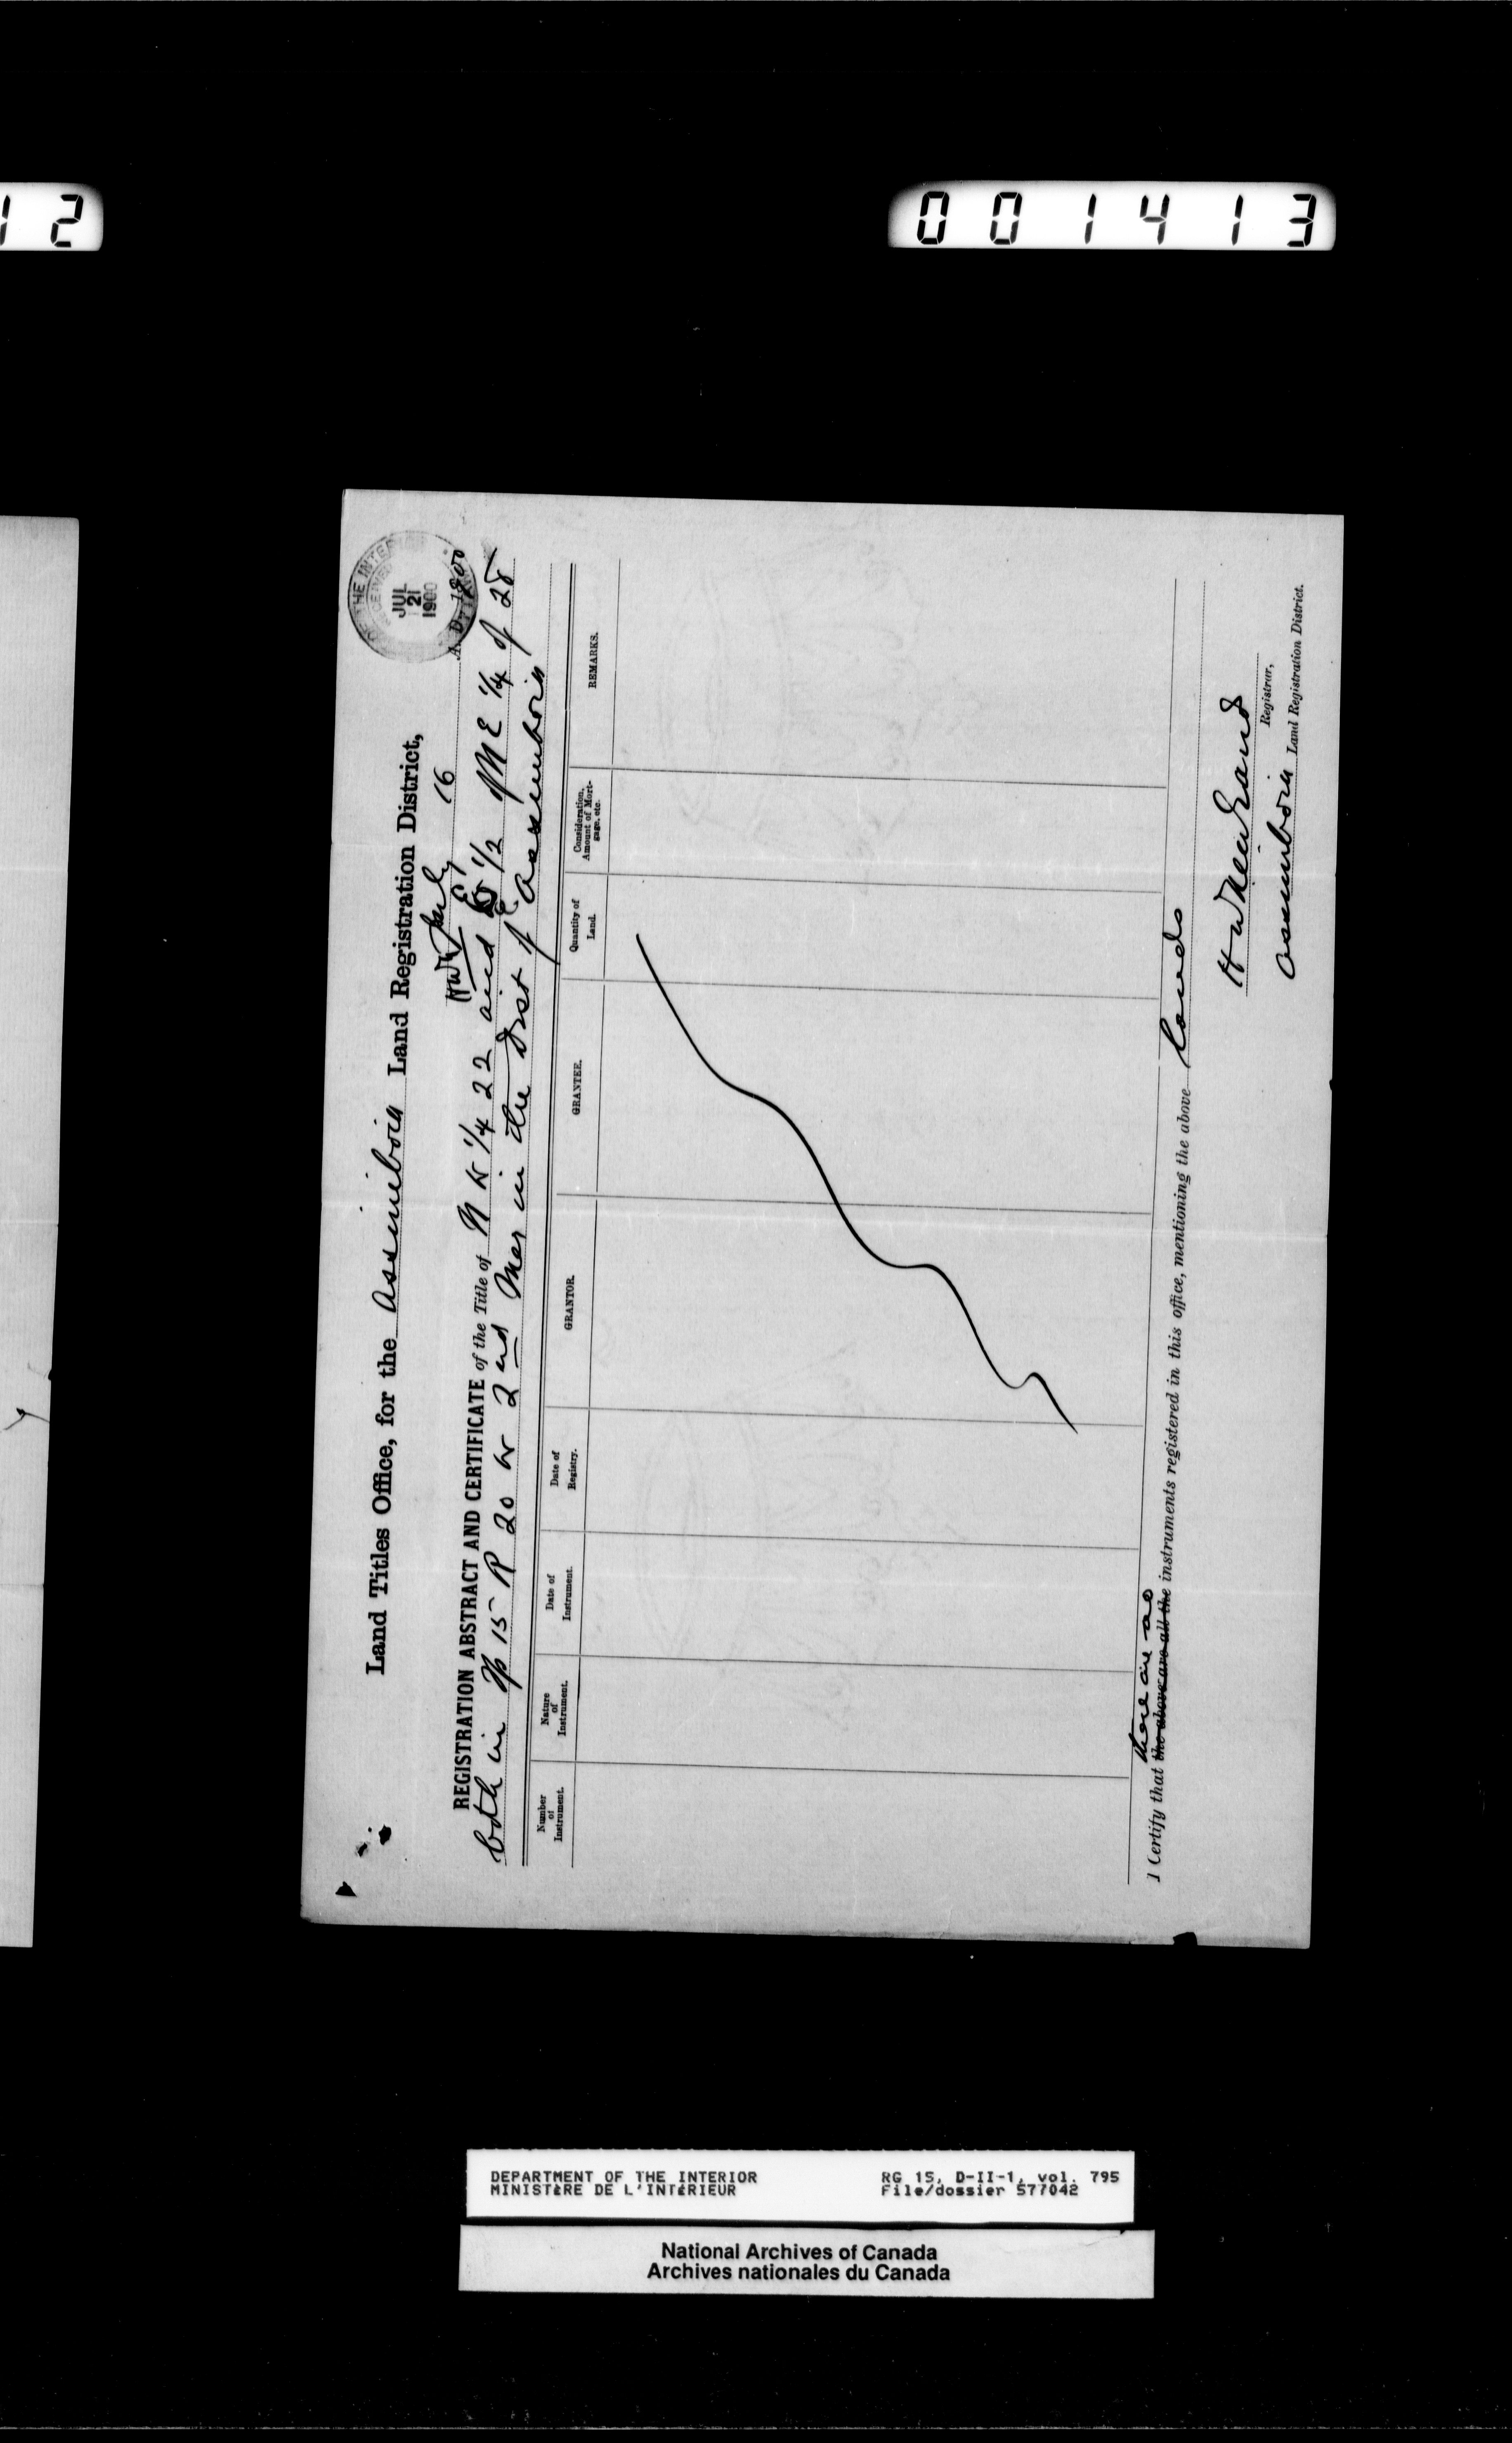 12
001413
OF THE INTE
RECEIVED
JUL
21
1900
Land Titles Office, for the Assiniboia Land Registration District,
July 16 A. D. 1900
REGISTRATION ABSTRACT AND CERTIFICATE of the Title of N W 1/4 22 and E 1/2 of N E 1/4 of 28
both in Tp 15 R 20 W 2nd Mer in the Dist of Assiniboia
Number of Instrument.
Nature of Instrument.
Date of Instrument.
Date of Registry.
GRANTOR.
GRANTEE.
Quantity of Land.
Consideration, Amount of Mortgage, etc.
REMARKS.
there are no
I Certify that the above are all the instruments registered in this office, mentioning the above lands
Registrar,
Assiniboia Land Registration District.
DEPARTMENT OF THE INTERIOR
MINISTÈRE DE L'INTÉRIEUR
RG 15, D-II-1, vol. 795
File/dossier 577042
National Archives of Canada
Archives nationales du Canada